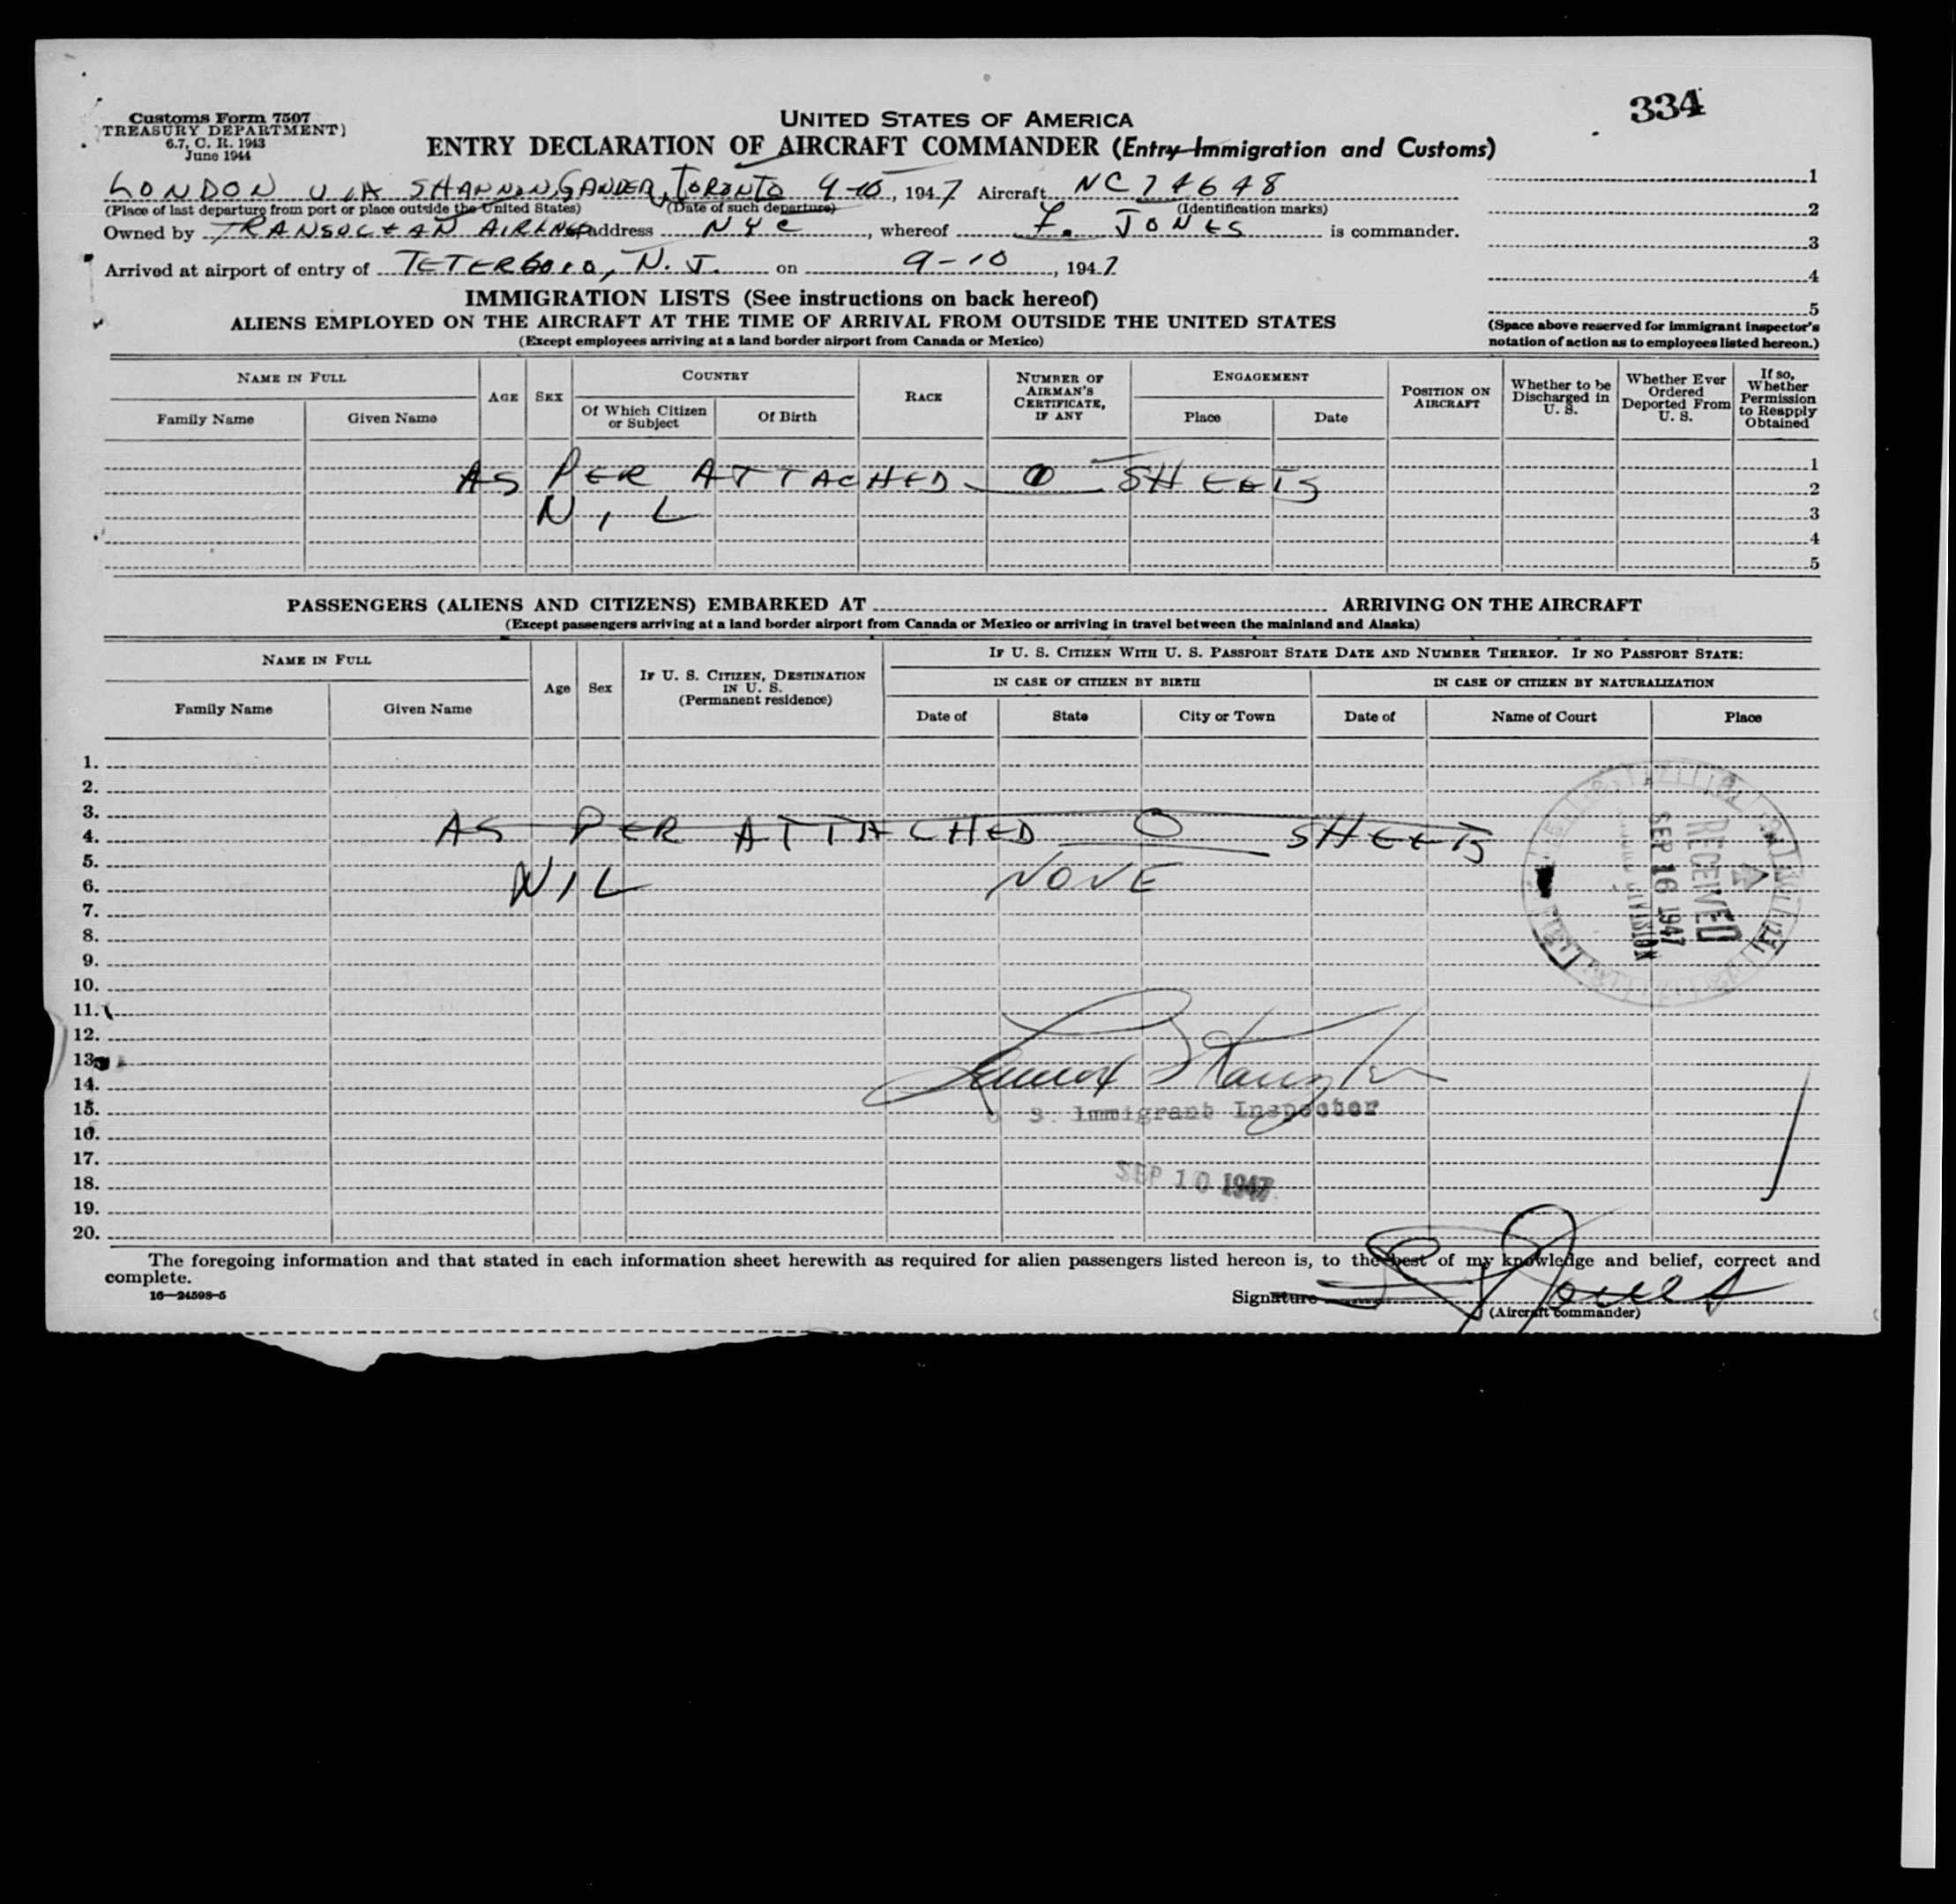 334
Customs Form 7507
(TREASURY DEPARTMENT)
6.7, C. R. 1943
June 1944
UNITED STATES OF AMERICA
ENTRY DECLARATION OF AIRCRAFT COMMANDER (Entry Immigration and Customs)
LONDON VIA SHANNON, GANDER, TORONTO 9-10, 1947 Aircraft NC74648
(Place of last departure from port or place outside the United States) (Date of such departure) (Identification marks)
Owned by TRANSOCEAN AIRLINES address NYC, whereof F. JONES is commander.
Arrived at airport of entry of TETERBORO, N.J. on 9-10, 1947
1
2
3
4
5
(Space above reserved for immigrant inspector's
notation of action as to employees listed hereon.)
IMMIGRATION LISTS (See instructions on back hereof)
ALIENS EMPLOYED ON THE AIRCRAFT AT THE TIME OF ARRIVAL FROM OUTSIDE THE UNITED STATES
(Except employees arriving at a land border airport from Canada or Mexico)
NAME IN FULL
Family Name
Given Name
AGE
SEX
COUNTRY
Of Which Citizen or Subject
Of Birth
RACE
NUMBER OF AIRMAN'S CERTIFICATE, IF ANY
ENGAGEMENT
Place
Date
POSITION ON AIRCRAFT
Whether to be Discharged in U. S.
Whether Ever Ordered Deported From U. S.
If so, Whether Permission to Reapply Obtained
1
AS PER ATTACHED 0 SHEETS 2
NIL 3
4
5
PASSENGERS (ALIENS AND CITIZENS) EMBARKED AT ARRIVING ON THE AIRCRAFT
(Except passengers arriving at a land border airport from Canada or Mexico or arriving in travel between the mainland and Alaska)
NAME IN FULL
Family Name
Given Name
Age
Sex
IF U. S. CITIZEN, DESTINATION IN U. S.
(Permanent residence)
IF U. S. CITIZEN WITH U. S. PASSPORT STATE DATE AND NUMBER THEREOF. IF NO PASSPORT STATE:
IN CASE OF CITIZEN BY BIRTH
Date of
State
City or Town
IN CASE OF CITIZEN BY NATURALIZATION
Date of
Name of Court
Place
1.
2.
3.
4. AS PER ATTACHED 0 SHEETS
5.
6. NIL NONE
7.
8.
9.
10.
11.
12.
13.
14.
15.
16.
17.
18.
19.
20.
RECEIVED
SEP 16 1947
DIVISION
S. Immigrant Inspector
SEP 10 1947
The foregoing information and that stated in each information sheet herewith as required for alien passengers listed hereon is, to the best of my knowledge and belief, correct and
complete.
16—24598-5
Signature Jones
(Aircraft commander)